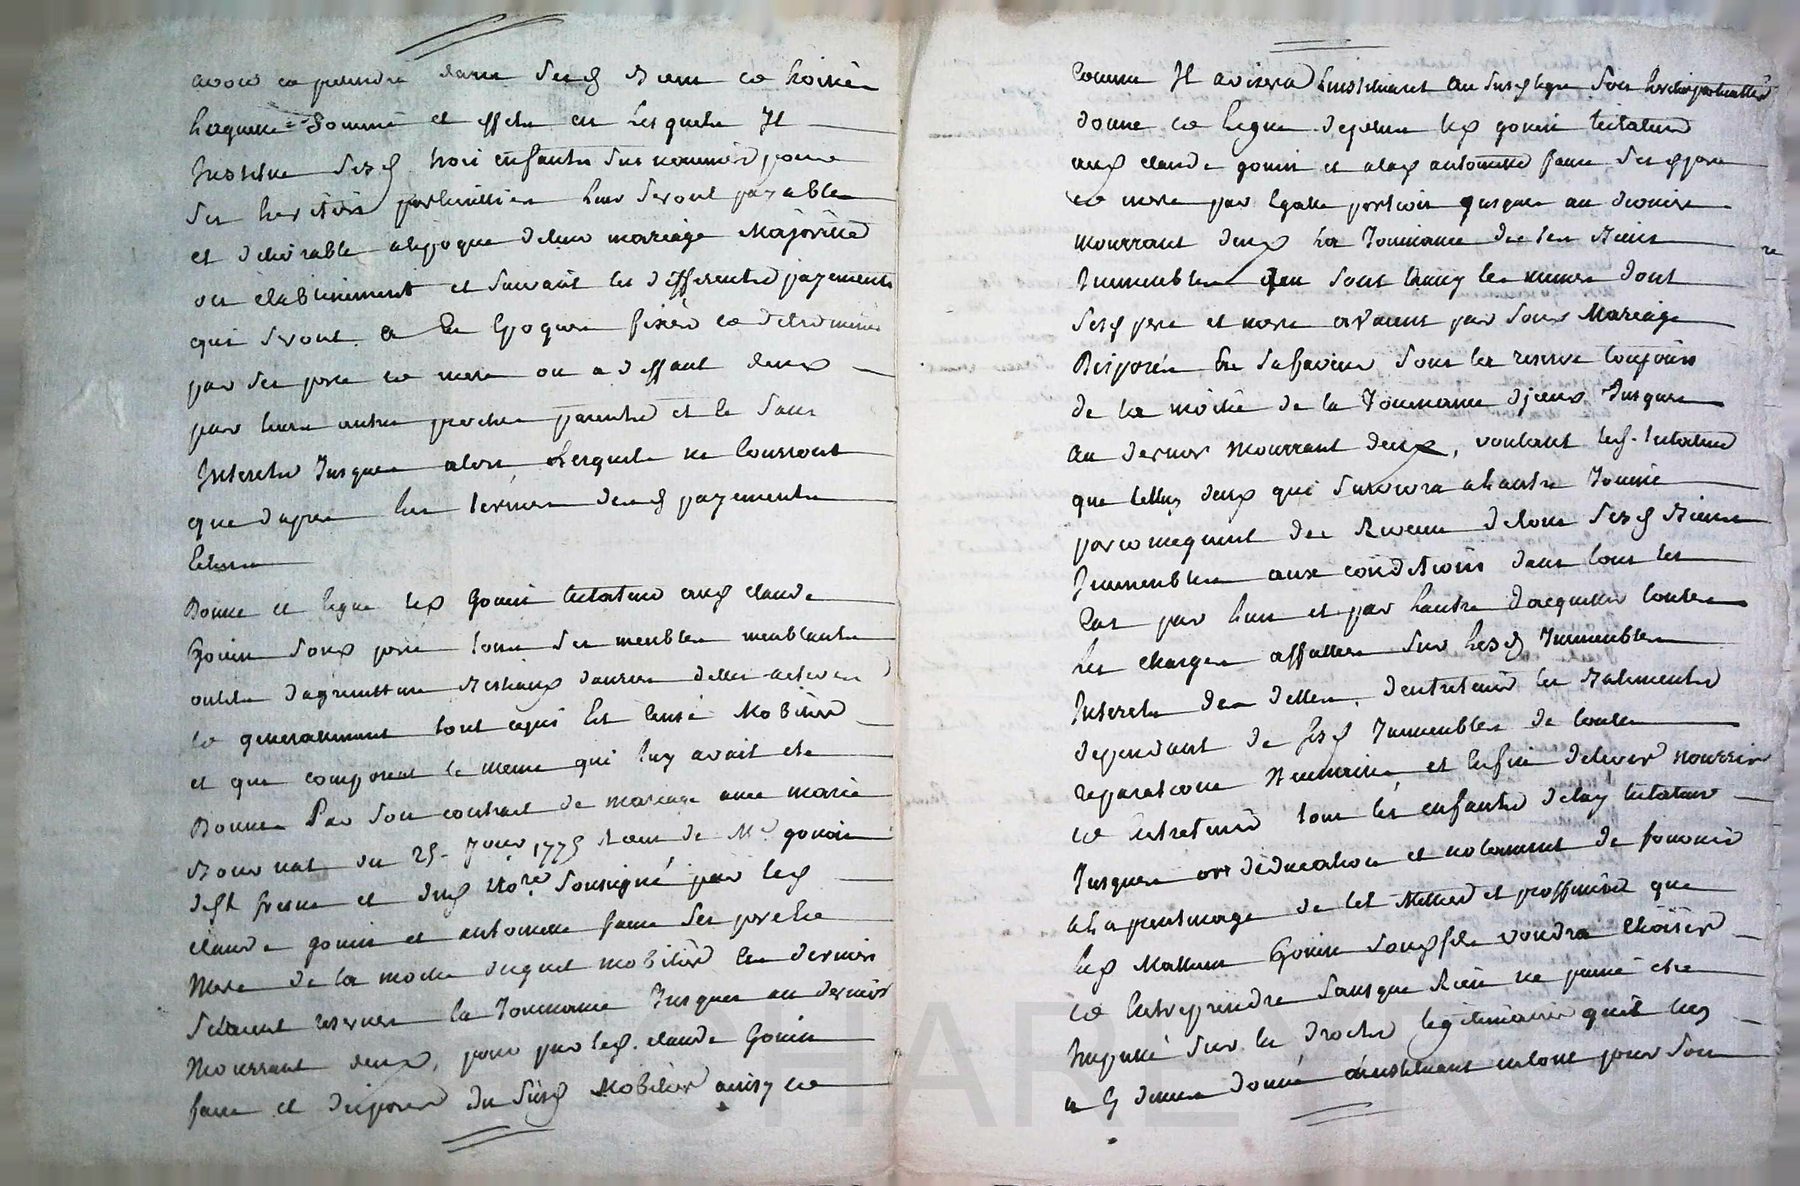 avoir et prendre dans sesd biens et hoirie
laquelle somme et effets en lesquels Il
Institue sesd trois enfants sus nommés pour
ses heritiers particulliers leur seront payables
et delivrable alepoque deleur mariage Majorité
ou etablissement et suivant les differents payements
qui seront a les Epoques fixés et determinés
par ses pere et mere ou a deffaut deux
par leurs autres proches parents et le sans
Interets Jusques alors lesquels ne courront
que dapres les termes desd payements
echus
Donne et legue led Gonin testateur aud claude
Gonin son pere tous ses meubles meublants
outils dagriculture Bestiaux danrées dettes actives
et generallement tout cequi Est censé Mobilier
et que composent le meme qui luy avait ete
Donné Par son contrat de mariage avec marie
du 25 1775 Recu de Me gonin
et dud Nore soussigné par led
claude gonin et antoinette faure ses pere et
Mere de la moitié duquel mobilier les derniers
setaient reservés la Jouissance Jusques au dernier
Mourrant deux, pour par led claude Gonin
faire et disposer du susd Mobilier ainsy et
comme Il avisera Linstituant au susd legue son heritier particullier
donne et legue deplus led gonin testateur
aud claude gonin et alad antoinette faure sesd pere
et mere par Egalle portion Jusques au dernier
mourrant deux la Jouissance de ses Biens
Immeubles qui sont tous les memes dont
sesd pere et mere avaient par son Mariage
Disposés En sa faveur sous la reserve toujours
de la moitié de la Jouissance diceux Jusques
au dernier Mourrant deux, voulant led testateur
que celluy deux qui survivra alautre Jouisse
par consequent des Revenus detous sesd Biens
Immeubles aux conditions dans tous les
cas par lun et par lautre dacquitter toutes
les charges affectées sur lesd Immeubles
Interets des dettes, dentretenir les Batiments
dependant de sesd Immeubles de toutes
reparations Necessaires et Enfin delever nourrir
et entretenir tous les enfants delad testateur
Jusques et deducation et notamment de fournir
alapentissage de tel Metier et proffession que
led Mathieu Gonin son fils voudra choisir
et Entreprendre sansque Rien ne puisse etre
Imputé sur les droits legitimaires quil luy
a cy dessus donné linstituant en tout pour son